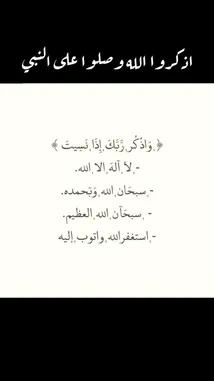 اذكروا الله وصلوا على النبي
﴿ وَاذْكُر رَّبَّكَ إِذَا نَسِيتَ ﴾
-, لآ آلهَ الا الله.
-, سبحَان الله وَبَحمده.
-, سبحَآن الله العظيم.
-, استغفرالله واتوب إليه